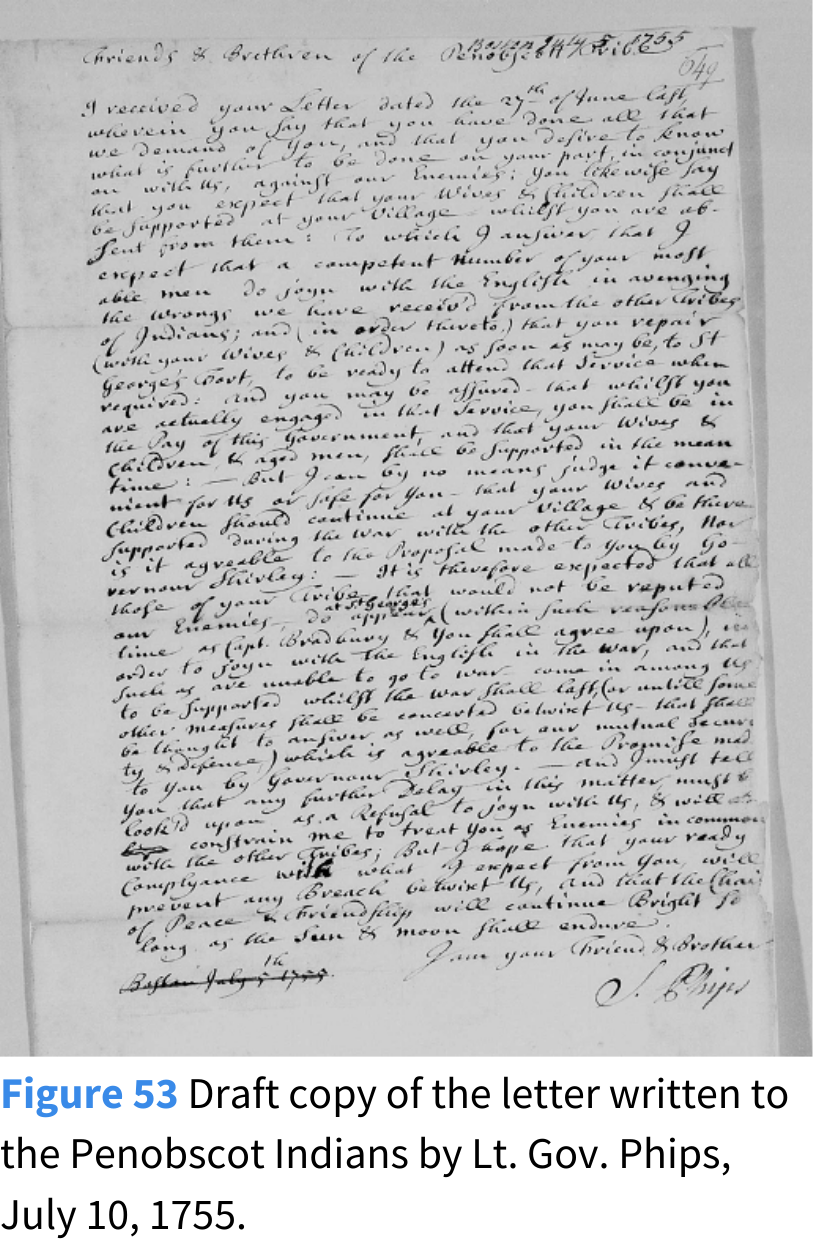 Boston July 5 1755
Friends & Brethren of the Penobscott Tribe
649
I received your Letter dated the 27th of June last,
wherein you say that you have done all that
we demand of you, and that you desire to know
what is further to be done on your part, in conjunct
on with us, against our Enemies; you likewise say
that you expect that your Wives & Children shall
be supported at your Village whilst you are ab-
sent from them: To which I answer that I
expect that a competent Number of your most
able men do joyn with the English in avenging
the wrongs we have received from the other Tribes
of Indians; and (in order thereto,) that you repair
(with your Wives & Children) as soon as may be, to St
George's Fort, to be ready to attend that Service when
required: And you may be assured that whilst you
are actually engaged in that Service, you shall be in
the Pay of this Government, and that your Wives &
Children, & aged men, shall be supported in the mean
time: — But I can by no means judge it conve-
nient for Us or safe for You that your Wives and
Children should continue at your Village & be there
supported during the War with the other Tribes, Nor
is it agreable to the Proposal made to You by Go-
vernour Shirley: — It is therefore expected that all
those of your Tribe that would not be reputed
our Enemies, do appear at St Georges (within such reasonable
time as Capt. Bradbury & You shall agree upon), in
order to joyn with the English in the war, and that
such as are unable to go to war come in among Us
to be supported whilst the war shall last, (or untill some
other measures shall be concerted betwixt Us that shall
be thought to answer as well, for our mutual Securi
ty & defence) which is agreable to the Promise mad
to you by Governour Shirley. — and I must tell
you that any further Delay in this matter must b
look'd upon as a Refusal to joyn with Us, & will
constrain me to treat You as Enemies in common
with the other Tribes; But I hope that your ready
Complyance with what I expect from You, will
prevent any Breach betwixt Us, and that the Chai
of Peace & Friendship will continue Bright so
long as the Sun & moon shall endure.
I am your Friend & Brother
S. Phips
Boston July 5th 1755.
Figure 53 Draft copy of the letter written to
the Penobscot Indians by Lt. Gov. Phips,
July 10, 1755.